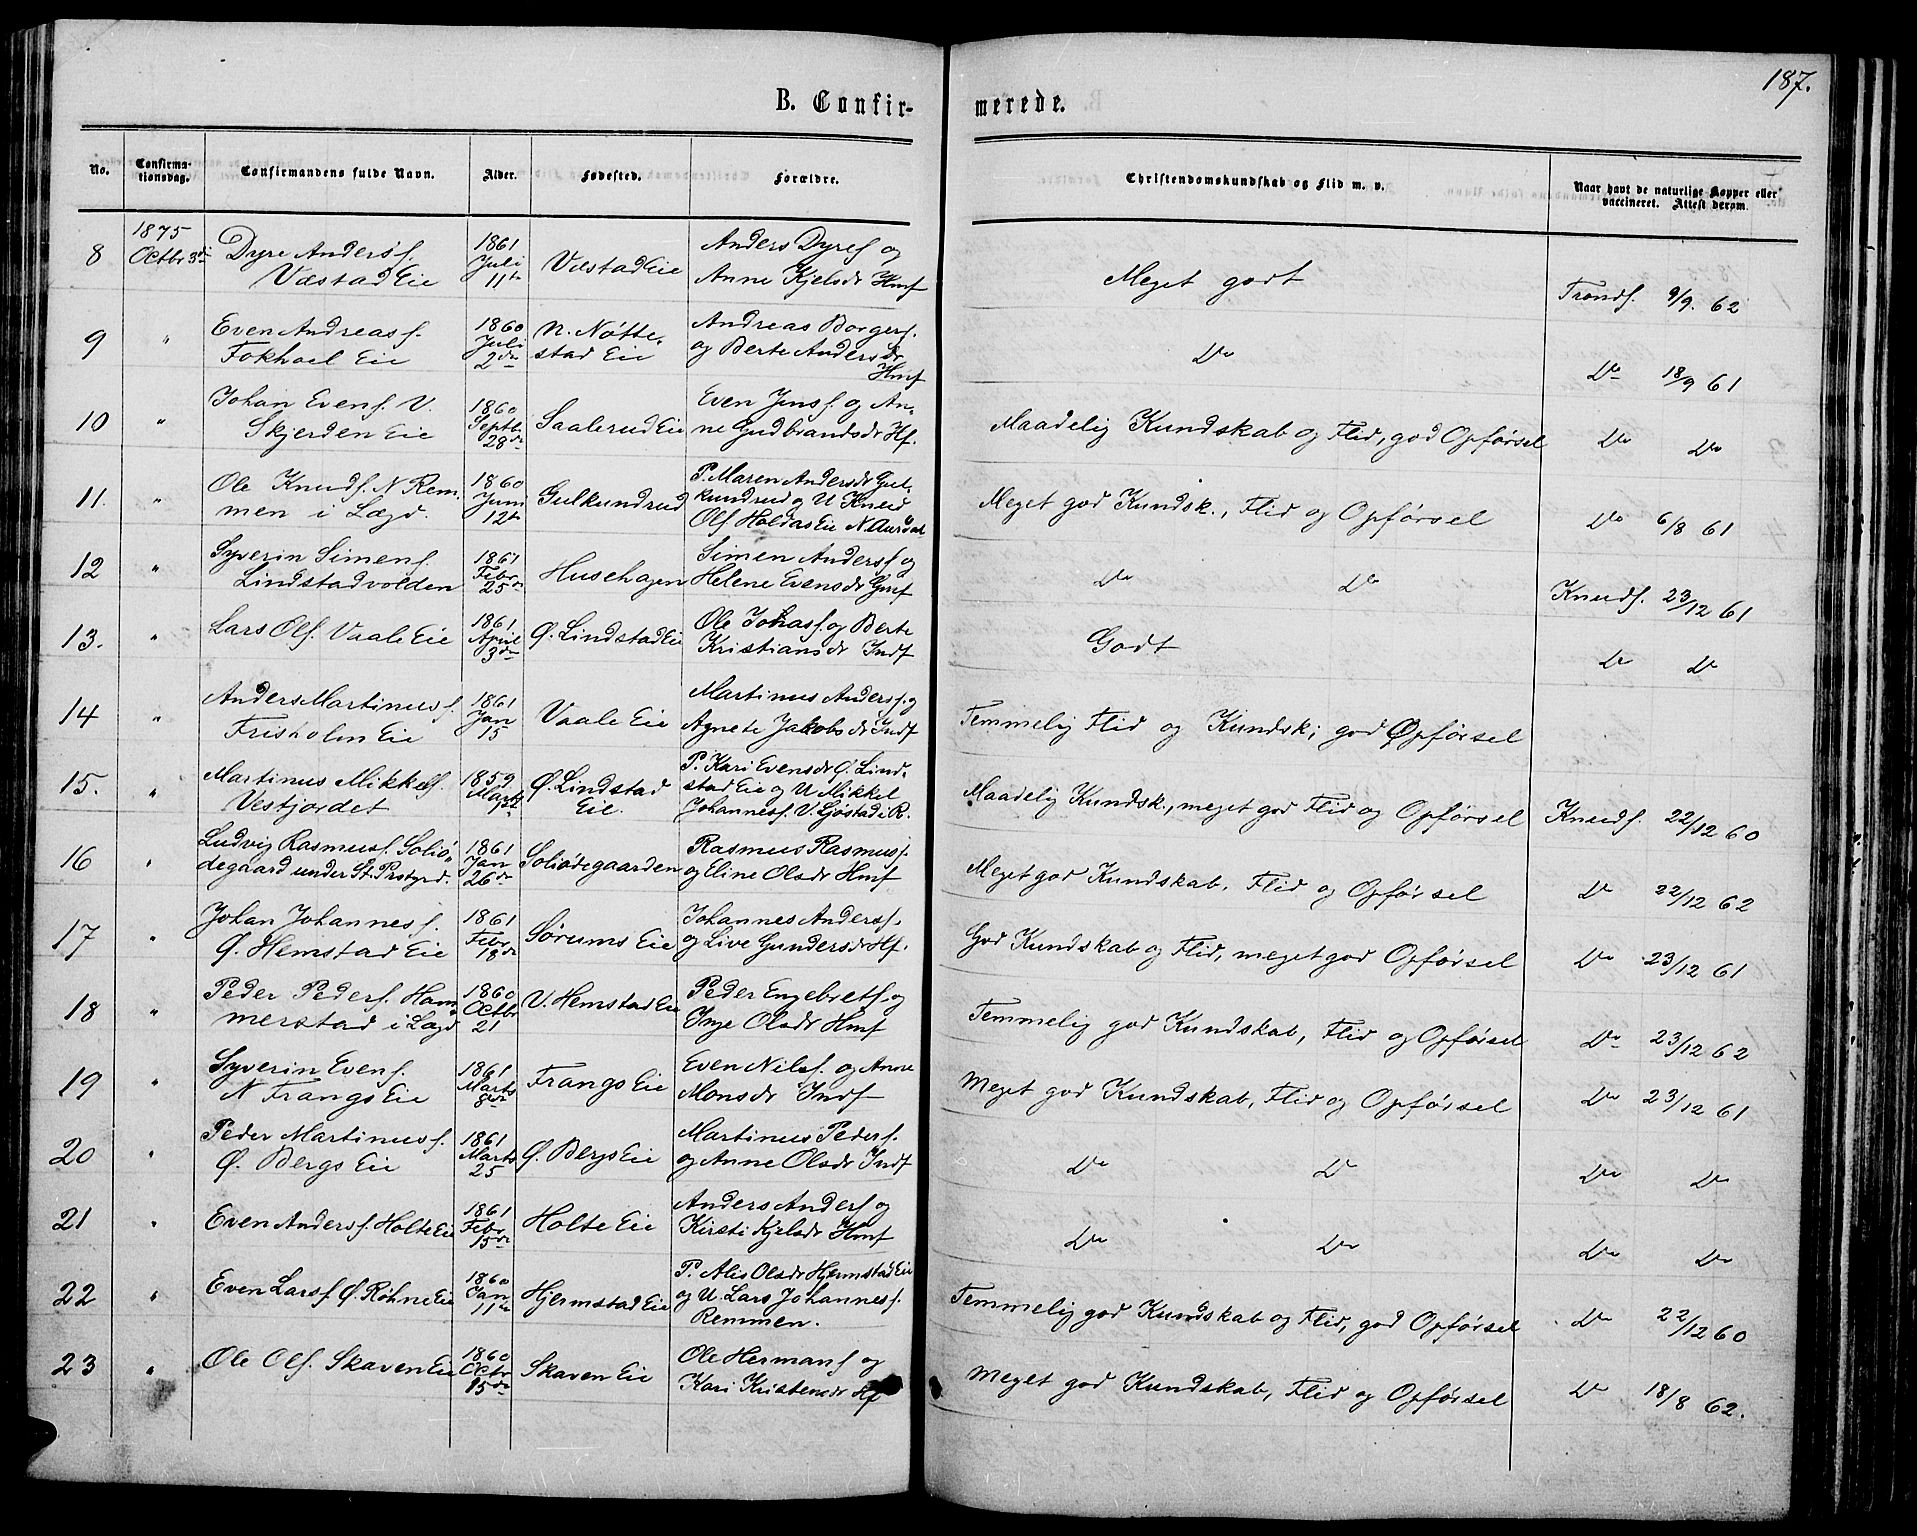 187.
B. Confir-
merede.
No.
Confirma-
tionsdag.
Confirmandens fulde Navn.
Alder.
Fødested.
Forældre.
Christendomskundskab og Flid m. v.
Naar havt de naturlige Kopper eller
vaccineret. Attest derom.
8 1875 Octbr 3di
Dyre Andersf.
Væstad Eie
1861
Juli
11te
Væstad Eie
Anders Dyresf og
Anne Kjelsdr Hmf
Meget godt
Trondf. 9/9. 62
9 "
Even Andreasf.
Fokhoel Eie
1860
Juli
2de
N. Nøtte-
stad Eie
Andreas Borgerf.
og Berte Andersdr
Hmf
Do
Do 18/9 61
10 "
Johan Evensf. V.
Skjerden Eie
1860
Septb.
28de
Saalerud Eie
Even Jensf. og An-
ne Gudbrandsdr Hf.
Maadelig Kundskab og Flid, god Opførsel
Do Do
11. "
Ole Knudsf. N Rem-
men i Lægd.
1860
Juni
12te
Gulkundrud
P. Maren Andersdr Gul-
kundrud og U Knud
Olsf Holdas Eie N Aurdal
Meget god Kundsk., Flid og Opførsel
Do 6/8 61
12 "
Syverin Simensf.
Lindstadvolden
1861
Febr
25de
Husehagen
Simen Andersf og
Helene Evensdr Gmf
Do Do
Knudf. 23/12 61
13. "
Lars Olsf. Vaale Eie
1861
April
3de
Ø. Lindstad Eie
Ole Johasf. og Berte
Kristiansdr Indf
Godt
Do Do
14 "
Anders Martinusf.
Frisholm Eie
1861
Jan
15
Vaale Eie
Martinus Andersf. og
Agnete Jakobsdr Indf
Temmelig Flid og Kundsk; god Opførsel
15. "
Martinus Mikkelsf.
Vestjordet
1859
Marts
Ø. Lindstad
Eie.
P. Kari Evensdr Ø. Lind-
stad Eie og U Mikkel
Johannesf. V. Ljøstad i R.
Maadelig Kundsk., meget god Flid og Opførsel
Knudf. 22/12 60
16 "
Ludvig Rasmusf. Soliø-
degaard under St. Prstgrd.
1861
Jan
26de
Soliødegaarden
Rasmus Rasmusf.
og Eline Olsdr Hmf
Meget god Kundskab, Flid og Opførsel
Do 22/12 62
17 "
Johan Johannesf.
Ø. Hemstad Eie
1861
Febr
18de
Sørums Eie
Johannes Andersf.
og Live Gundersdr Hf.
God Kundskab og Flid, meget god Opførsel
Do 23/12 61
18 "
Peder Pedersf. Ham-
merstad i Lægd
1860
Octbr
21
V. Hemstad Eie
Peder Engebretsf. og
Inge Olsdr Hmf
Temmelig god Kundskab, Flid og Opførsel
Do 23/12 62
19 "
Syverin Evensf.
N Frangs Eie
1861
Marts
8de
Frangs Eie
Even Nilsf. og Anne
Monsdr Indf
Meget god Kundskab, Flid og Opførsel
Do 23/12 61
20 "
Peder Martinusf.
Ø. Bergs Eie
1861
Marts
25
Ø. Bergs Eie
Martinus Pedersf.
og Anne Olsdr Indf
Do Do
Do Do
21 "
Even Andersf. Holte Eie
1861
Febr
15de
Holte Eie
Anders Andersf og
Kirsti Kjelsdr Hmf
Do Do
Do Do
22 "
Even Larsf Ø. Røhne Eie
1860
Jan
11te
Hjermstad Eie
P. Alis Olsdr Hjermstad Eie
og U. Lars Johannesf.
Remmen.
Temmelig god Kundskab og Flid, god Opførsel
Do 22/12 60
23 "
Ole Olsf. Skaven Eie
1860
Octbr
15de
Skaven Eie
Ole Hermansf og
Kari Kristensdr Hf
Meget god Kundskab, Flid og Opførsel
Do 18/8 62.